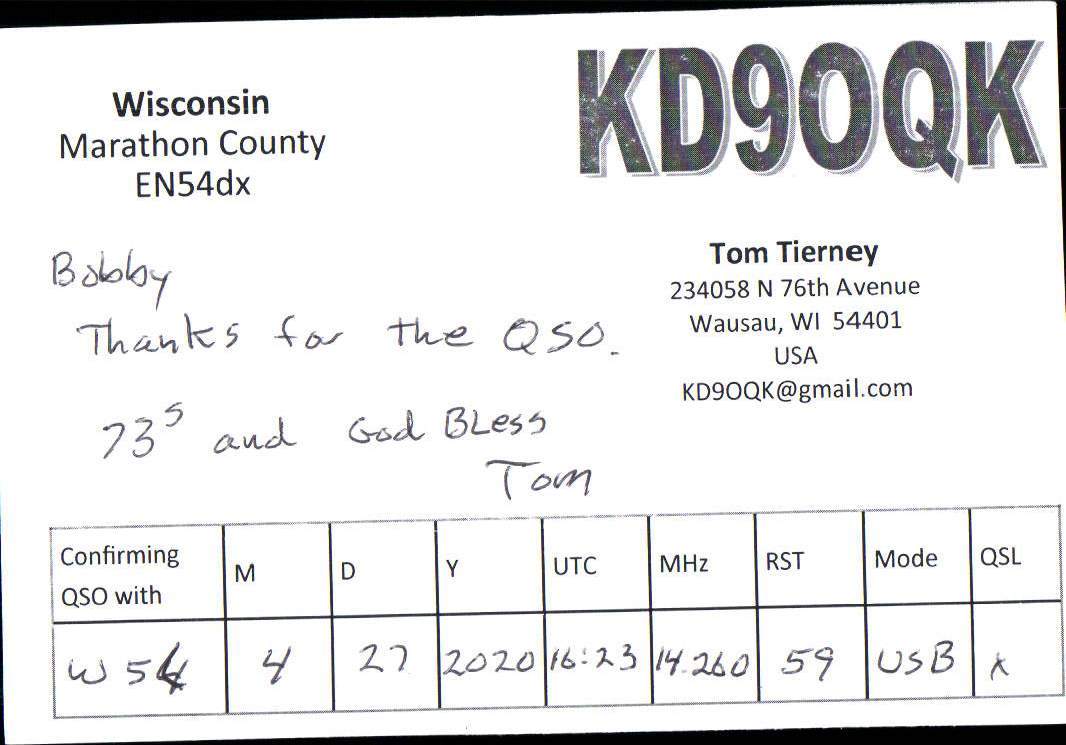 Wisconsin
Marathon County
EN54dx
KD9OQK
Tom Tierney
234058 N 76th Avenue
Wausau, WI 54401
USA
KD9OQK@gmail.com
Bobby
Thanks for the QSO.
73s and God Bless
Tom
Confirming QSO with M D Y UTC MHz RST Mode QSL
4 27 2020 16:23 14.260 59 USB x